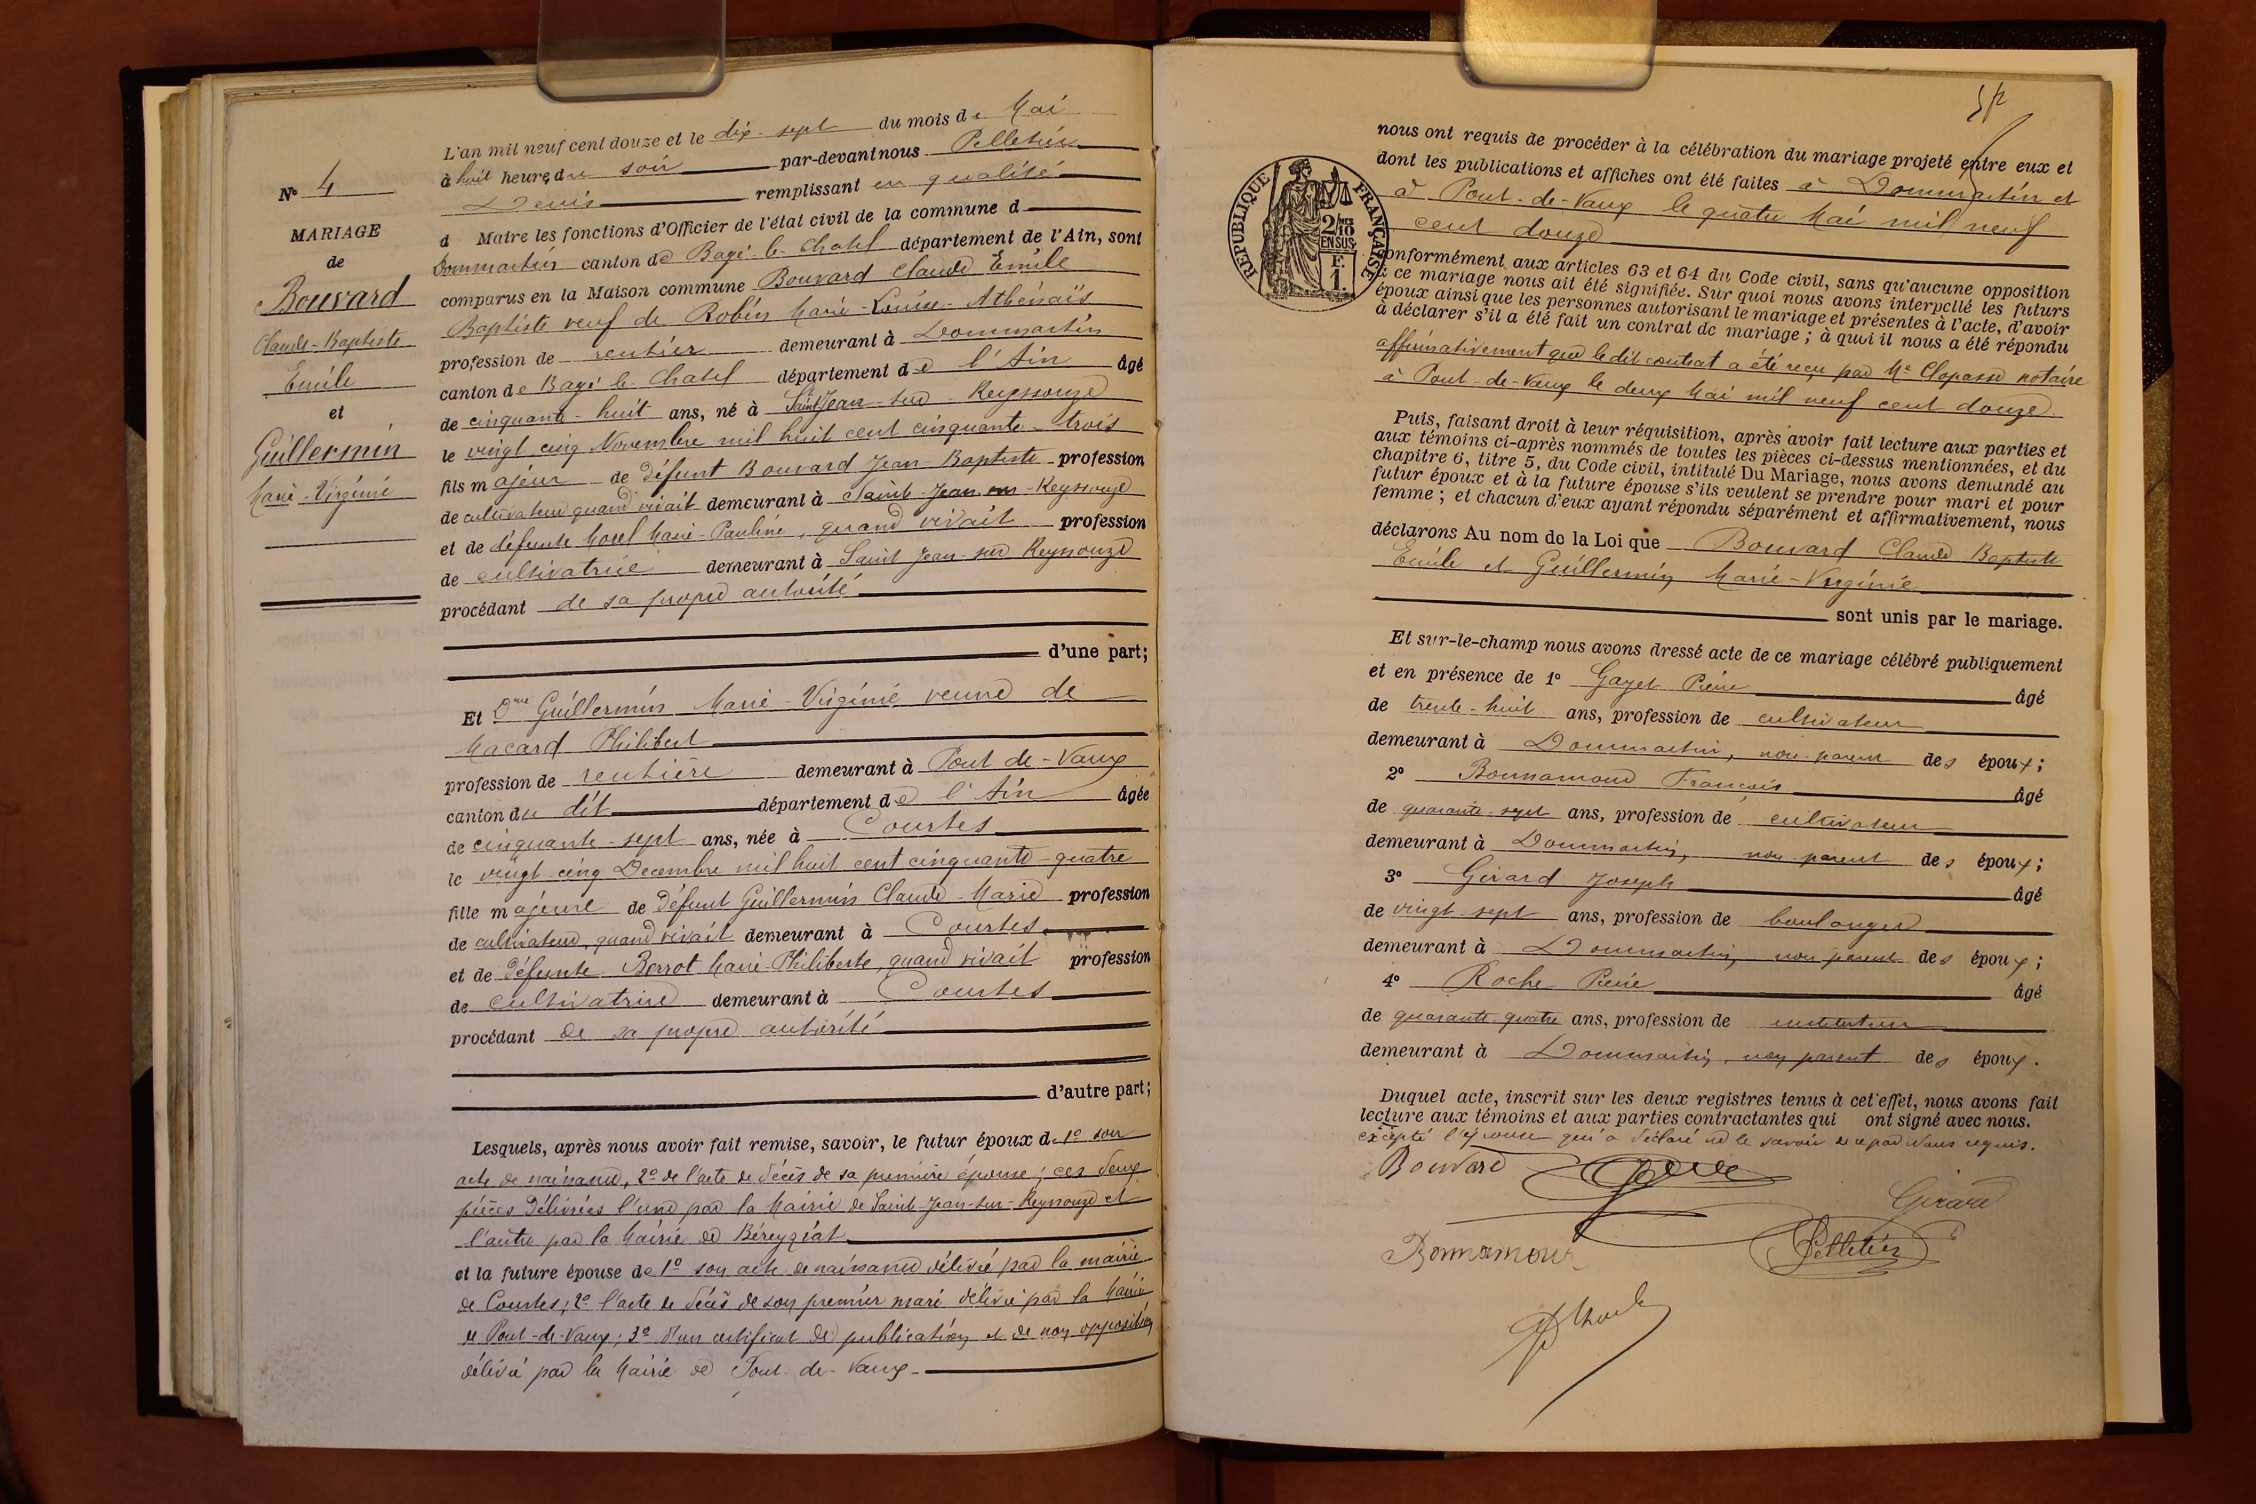 N° 4
MARIAGE
de
Bouvard
Claude-Baptiste
Emile
et
Guillermin
Marie-Virginie
L'an mil neuf cent douze et le dix-sept du mois de Mai
à huit heures du soir par-devant nous Pelletier
Denis remplissant en qualité
d Maire les fonctions d'Officier de l'état civil de la commune d
Dommartin canton de Bagé-le-Chatel département de l'Ain, sont
comparus en la Maison commune Bouvard Claude Emile
Baptiste veuf de Robin Marie-Louise-Athénaïs
profession de rentier demeurant à Dommartin
canton de Bagé-le-Chatel département de l'Ain âgé
de cinquante-huit ans, né à Saint Jean-sur-Reyssouze
le vingt cinq Novembre mil huit cent cinquante-trois
fils majeur de défunt Bouvard Jean-Baptiste profession
de cultivateur quand vivait demeurant à Saint-Jean-sur-Reyssouze
et de défunte Morel Marie-Pauline, quand vivait profession
de cultivatrice demeurant à Saint Jean-sur Reyssouze
procédant de sa propre autorité
d'une part;
Et Dme Guillermin Marie-Virginie veuve de
Macard Philibert
profession de rentière demeurant à Pont-de-Vaux
canton du dit département de l'Ain âgée
de cinquante-sept ans, née à Courtes
le vingt-cinq Decembre mil huit cent cinquante-quatre
fille majeure de défunt Guillermin Claude-Marie profession
de cultivateur, quand vivait demeurant à Courtes
et de défunte Berrot Marie-Philiberte, quand vivait profession
de cultivatrice demeurant à Courtes
procédant de sa propre autorité
d'autre part;
Lesquels, après nous avoir fait remise, savoir, le futur époux de 1° son
acte de naissance, 2° de l'acte de décès de sa première épouse; ces deux
pièces délivrées l'une par la Mairie de Saint-Jean-sur-Reyssouze et
l'autre par la Mairie de Béreyziat
et la future épouse de 1° son acte de naissance délivré par la mairie
de Courtes; 2° l'acte de décès de son premier mari délivré par la Mairie
de Pont-de-Vaux; 3° d'un certificat de publication et de non opposition
délivré par la Mairie de Pont-de-Vaux
RÉPUBLIQUE FRANÇAISE
2/10
EN SUS
F.
1.
nous ont requis de procéder à la célébration du mariage projeté entre eux et
dont les publications et affiches ont été faites à Dommartin et
à Pont-de-Vaux le quatre Mai mil neuf
cent douze
conformément aux articles 63 et 64 du Code civil, sans qu'aucune opposition
à ce mariage nous ait été signifiée. Sur quoi nous avons interpellé les futurs
époux ainsi que les personnes autorisant le mariage et présentes à l'acte, d'avoir
à déclarer s'il a été fait un contrat de mariage; à quoi il nous a été répondu
affirmativement que le dit contrat a été reçu par Me Clopasse notaire
à Pont-de-Vaux le deux Mai mil neuf cent douze.
Puis, faisant droit à leur réquisition, après avoir fait lecture aux parties et
aux témoins ci-après nommés de toutes les pièces ci-dessus mentionnées, et du
chapitre 6, titre 5, du Code civil, intitulé Du Mariage, nous avons demandé au
futur époux et à la future épouse s'ils veulent se prendre pour mari et pour
femme; et chacun d'eux ayant répondu séparément et affirmativement, nous
déclarons Au nom de la Loi que Bouvard Claude Baptiste
Emile et Guillermin Marie-Virginie
sont unis par le mariage.
Et sur-le-champ nous avons dressé acte de ce mariage célébré publiquement
et en présence de 1° Gayet Pierre âgé
de trente-huit ans, profession de cultivateur
demeurant à Dommartin, non parent des époux;
2° Bonnamour François âgé
de quarante-sept ans, profession de cultivateur
demeurant à Dommartin, non parent des époux;
3° Girard Joseph âgé
de vingt-sept ans, profession de boulanger
demeurant à Dommartin, non parent des époux;
4° Roche Pierre âgé
de quarante-quatre ans, profession de instituteur
demeurant à Dommartin, non parent des époux.
Duquel acte, inscrit sur les deux registres tenus à cet effet, nous avons fait
lecture aux témoins et aux parties contractantes qui ont signé avec nous.
excepté l'épouse qui a déclaré ne le savoir de ce par Nous requis.
Bouvard
Girard
Bonnamour
Pelletier